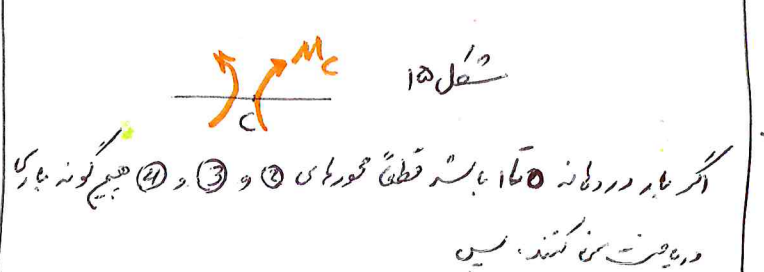 M_C
شکل ۱۵
C
اگر بار در دهانه 0 تا ۱ باشد قطعاً محورهای ② و ③ و ④ هیچ گونه باری
دریافت نمی کنند. پس